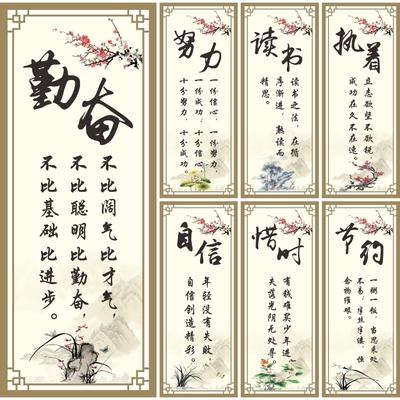 勤奋
不比阔气比才气,
不比聪明比勤奋,
不比基础比进步。
努力
一份信心,一份努力,
一份成功,十分信心,
十分努力,十分成功。
读书
读书之法,在循
序渐进,熟读而
精思。
执着
立志欲坚不欲锐,
成功在久不在速。
自信
年轻没有失败,
自信创造精彩。
惜时
有钱难买少年进
失落光阴无处寻。
节约
一粥一饭,当思来处
不易,半丝半缕,恒
念物维艰。